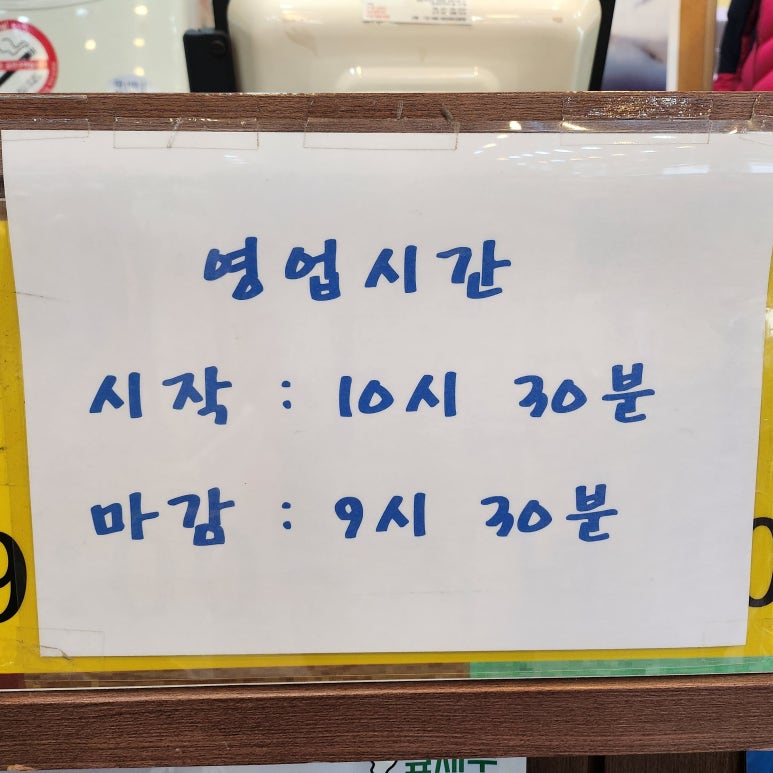 영업시간
시작 : 10시 30분
마감 : 9시 30분
9
0